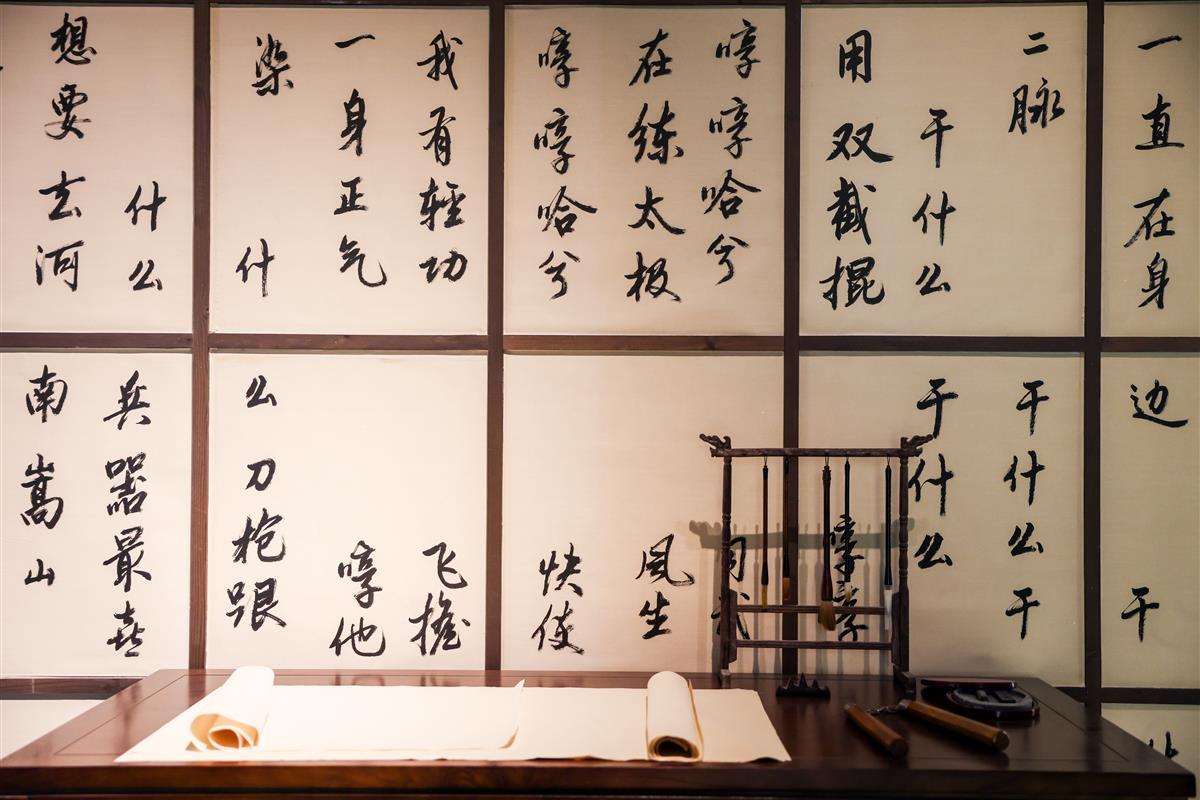 一直在身边干
二脉干什么干
干什么干什么
用双截棍哼
哼哼哈兮
在练太极风生
哼哼哈兮快使
我有輕功飞檐
一身正气哼他
染什么刀枪跟
什么兵器最喜
想要去河南嵩山